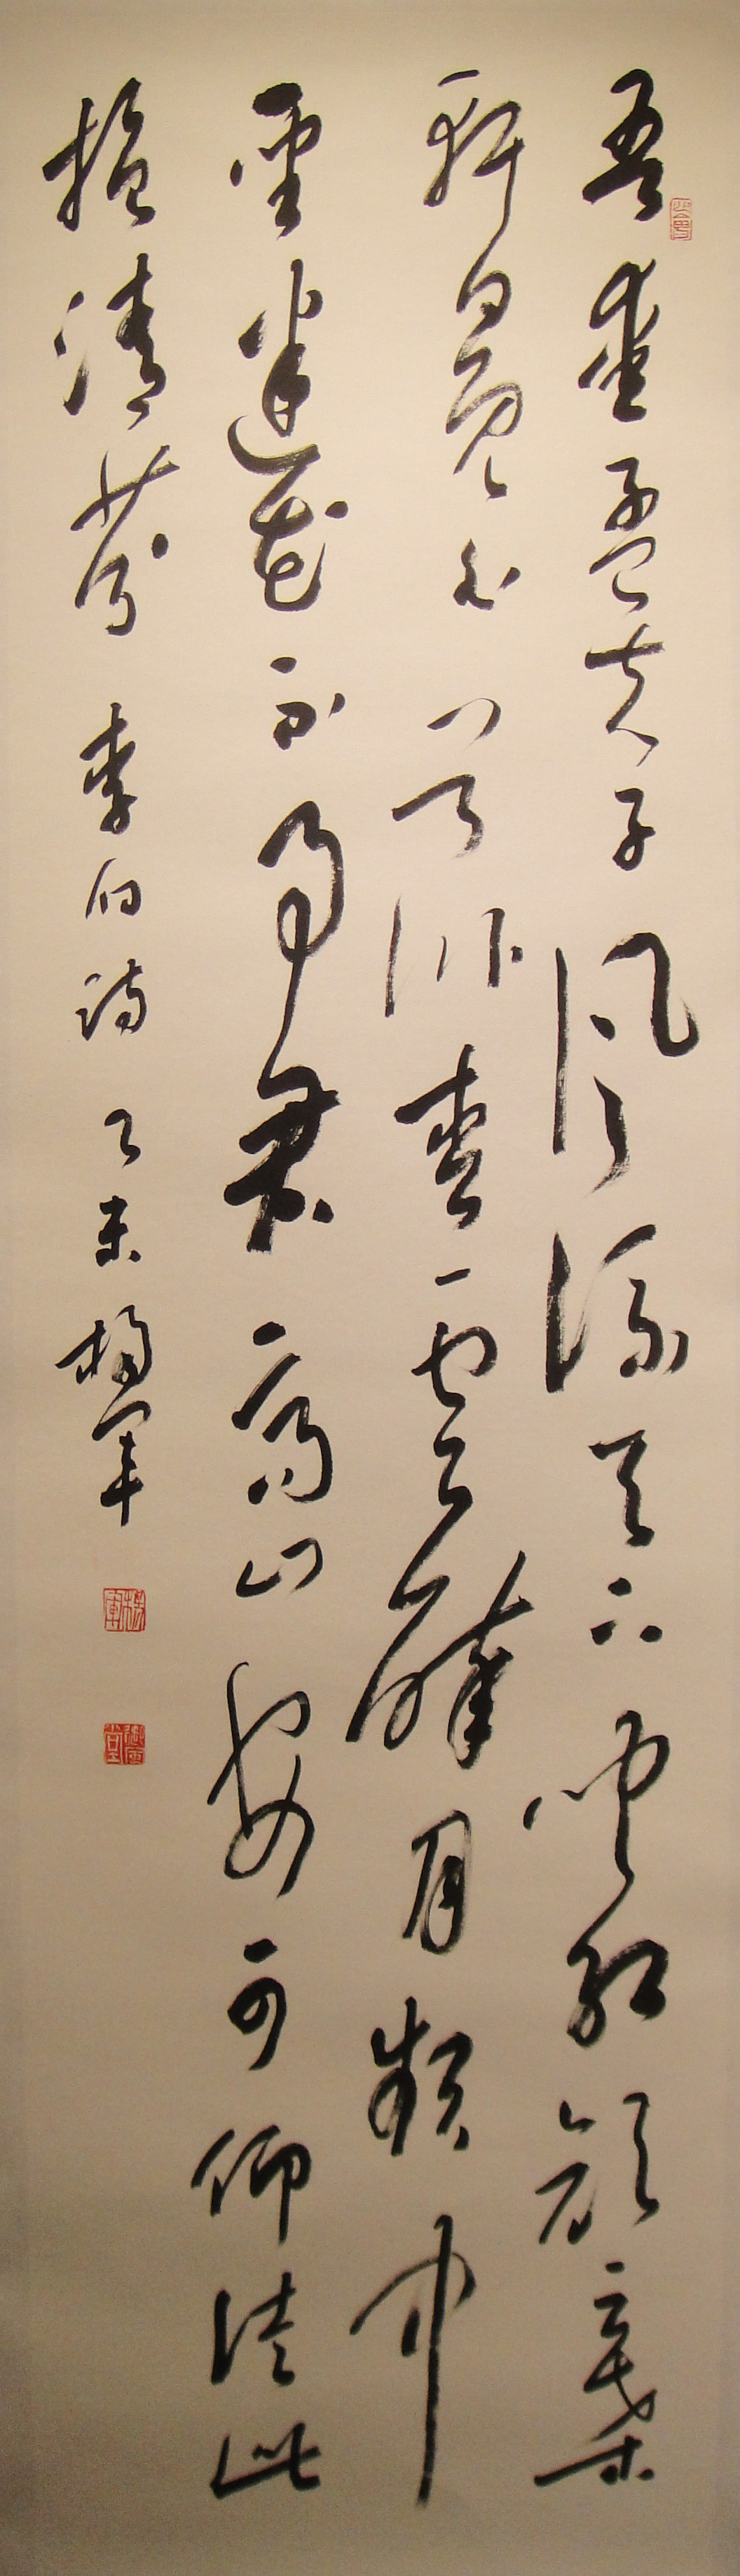 吾愛孟夫子風流天下聞紅顏棄
軒冕白首臥松雲醉月頻中
聖迷花不事君高山安可仰徒此
揖清芬 李白詩 乙未 楊軍